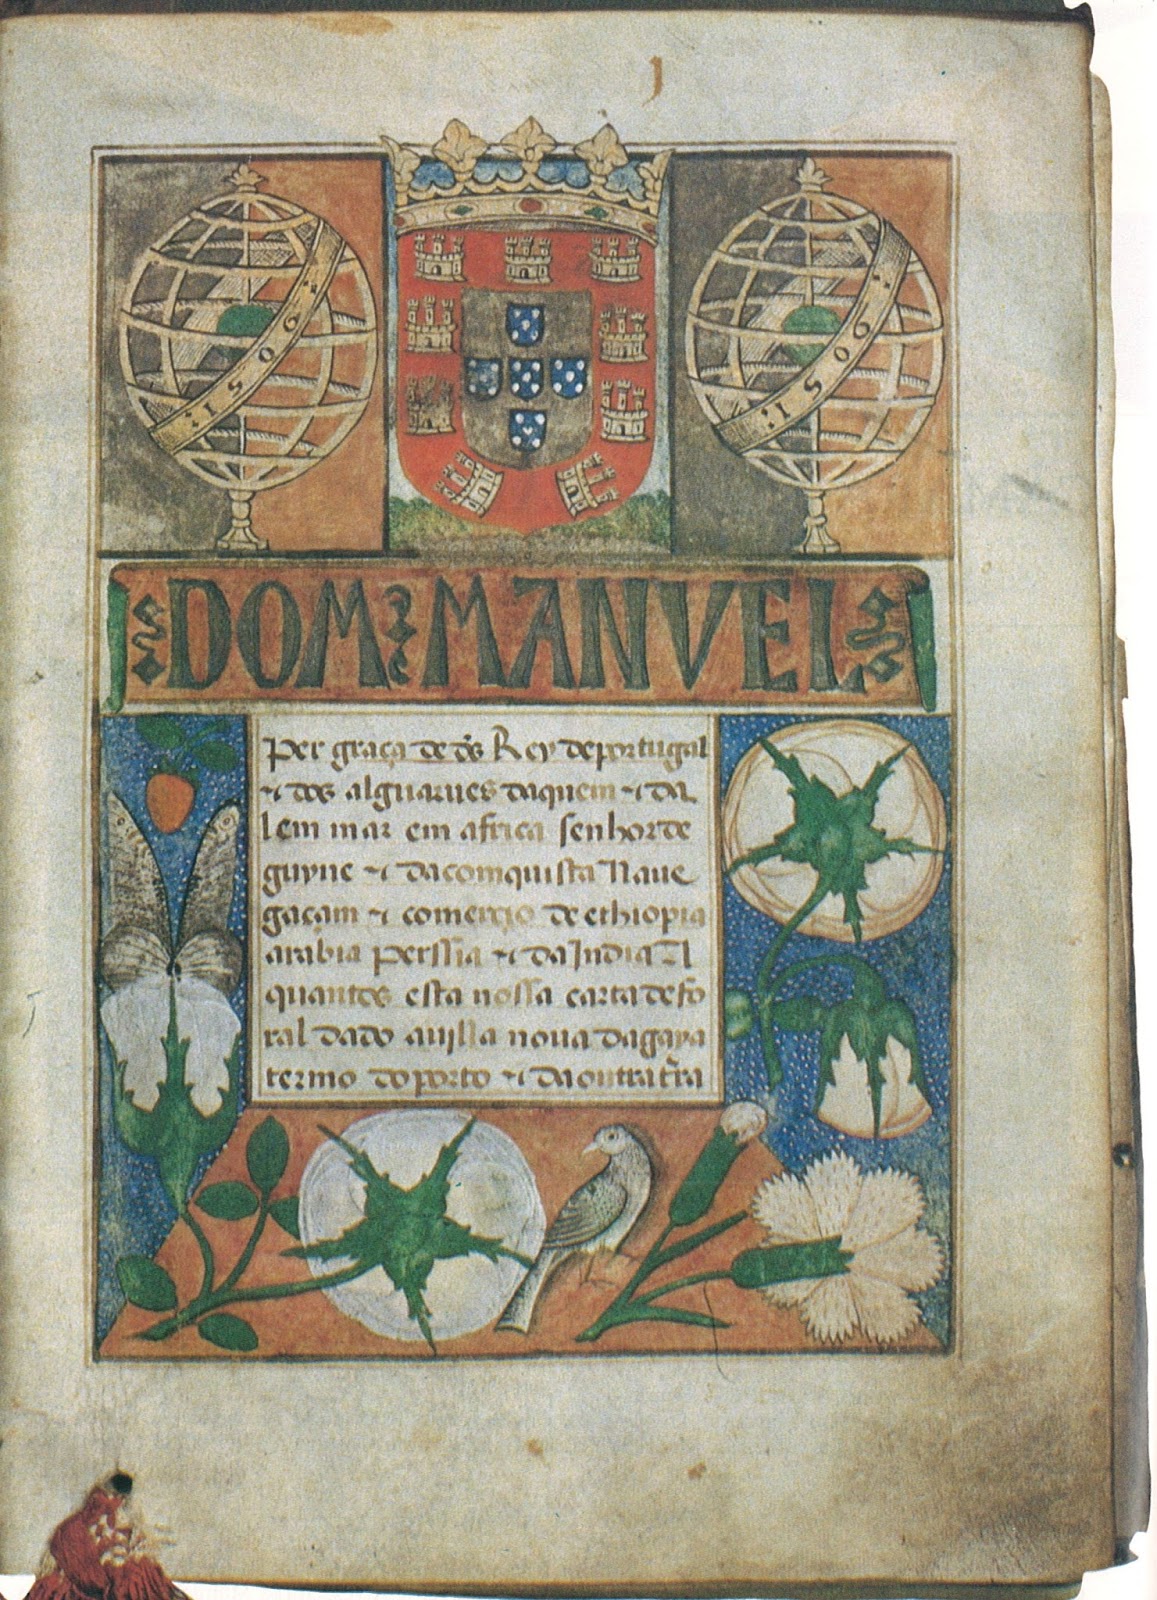 1506
1506
DOM MANVEL
Per graça de ds Rey de portugal
⁊ dos alguarues daquem ⁊ da
lem mar em africa senhor de
guyne ⁊ da comquista Naue
gaçam ⁊ comerçio de ethiopia
arabia perssia ⁊ da India A
quantos esta nossa carta de fo
ral dado a uylla noua da gaya
termo do porto ⁊ da outra trra